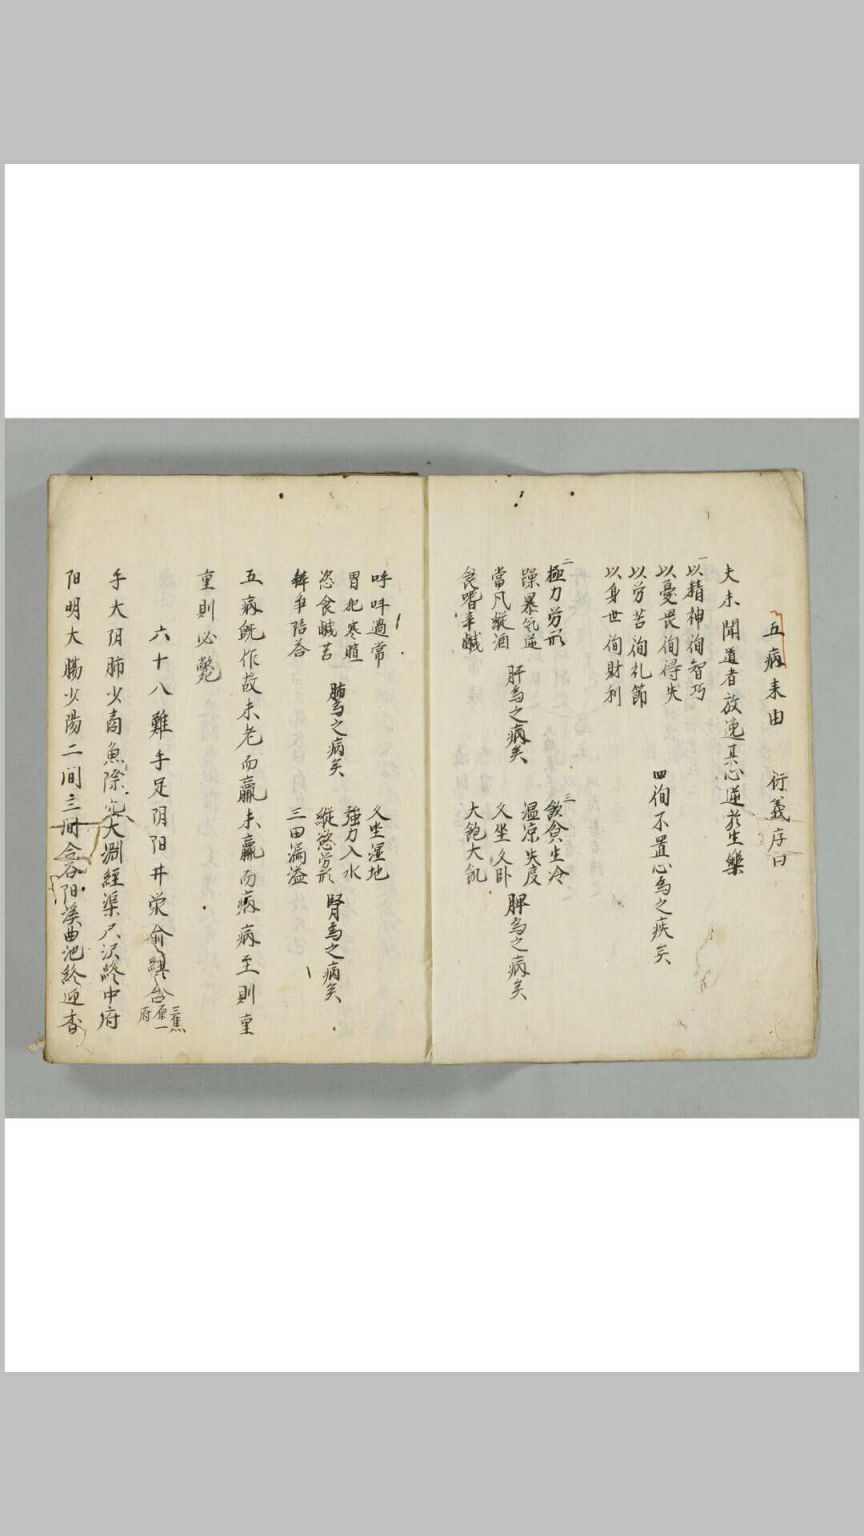 五病来由　衍義序曰
夫未聞道者放逸其心逆於生樂
一
以精神徇智巧
以憂畏徇得失
以労苦徇礼節
以身世徇財利
四徇不置心為之疾矣
二
極力労形
躁暴気逆
當凡縦酒
食嗜辛鹹
肝為之病矣
三
飲食生冷
温凉失度
久坐久卧
大飽大飢
脾為之病矣
呼吁過常
冒犯寒暄
恣食鹹苦
辨争陪答
肺為之病矣
久坐湿地
強力入水
縦慾労形
三田漏溢
腎為之病矣
五病既作故未老而羸未羸而病病至則重
重則必斃
六十八難手足阴阳井荣俞経合
三焦
原一
府
手大阴肺少商魚際大渊經渠尺沢終中府
阳明大腸少陽二间三合谷阳溪曲池終迎香